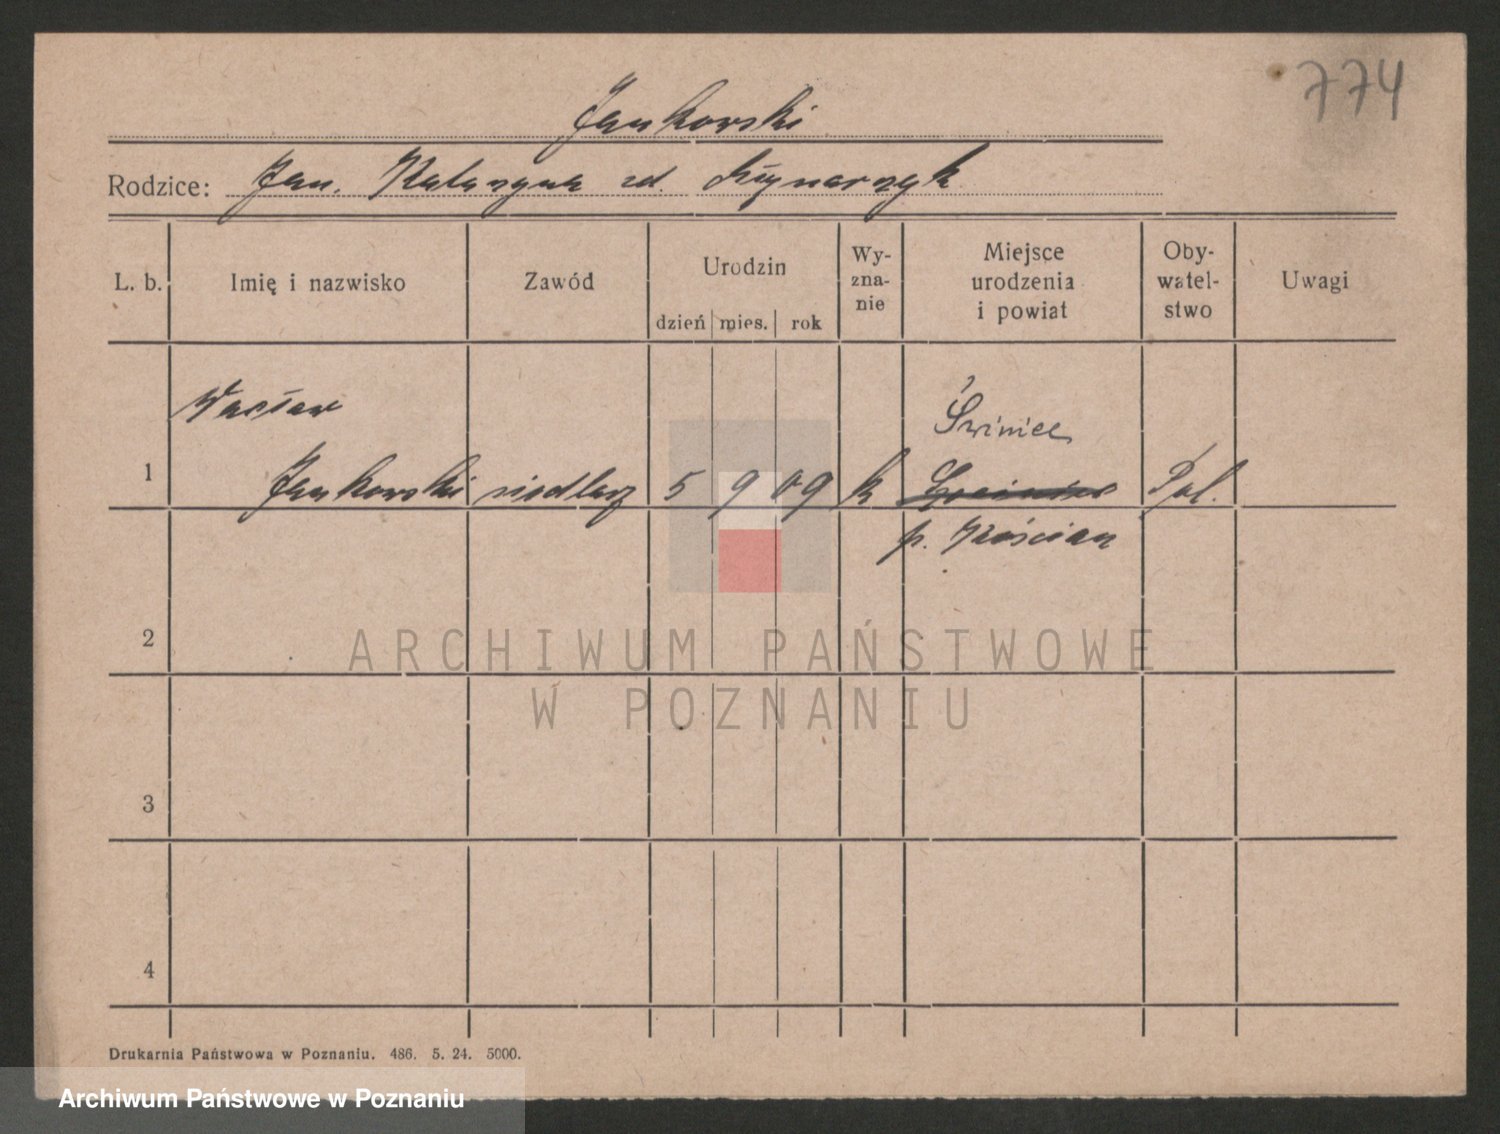 774
Jankowski
Rodzice: Jan. Katarzyna zd. Młynarzyk
L. b. Imię i nazwisko Zawód Urodzin dzień mies. rok Wy-zna-nie Miejsce urodzenia i powiat Oby-watel-stwo Uwagi
Wacław
Świniec
1 Jankowski siodlarz 5 9 09 k Pol.
p. Kościan
2
ARCHIWUM PAŃSTWOWE
W POZNANIU
3
4
Drukarnia Państwowa w Poznaniu. 486. 5. 24. 5000.
Archiwum Państwowe w Poznaniu